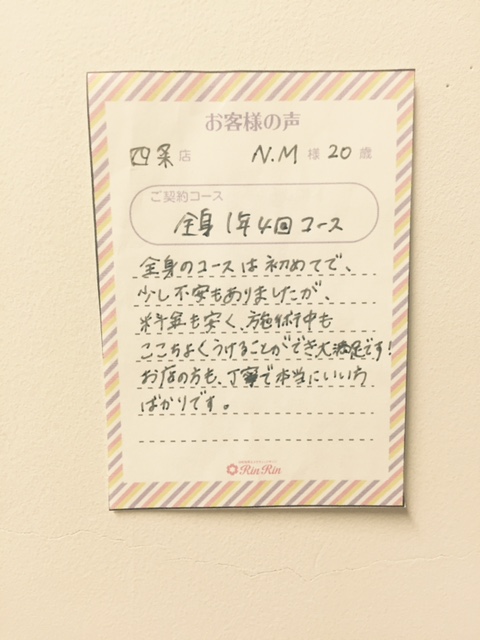 お客様の声
四条店 N.M様 20歳
ご契約コース
全身1年4回コース
全身のコースは初めてで、
少し不安もありましたが、
料金も安く、施術中も
ここちよくうけることができ大満足です!
お店の方も、丁寧で本当にいい方
ばかりです。
RinRin